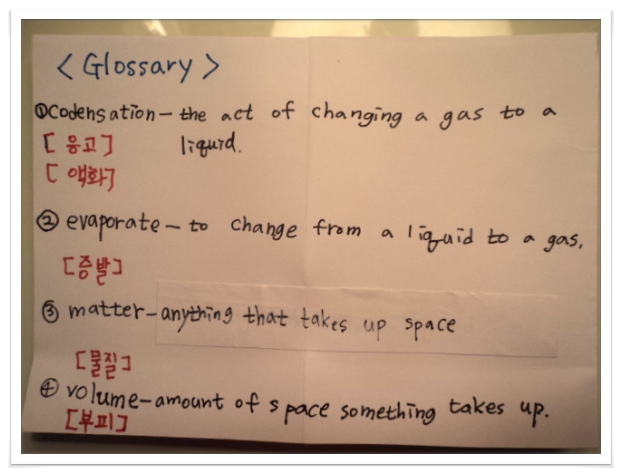 < Glossary >
①Codensation – the act of changing a gas to a
[ 응고 ] liquid.
[ 액화 ]
② evaporate – to change from a liquid to a gas.
[증발]
③ matter – anything that takes up space
[물질]
④ volume – amount of space something takes up.
[부피]